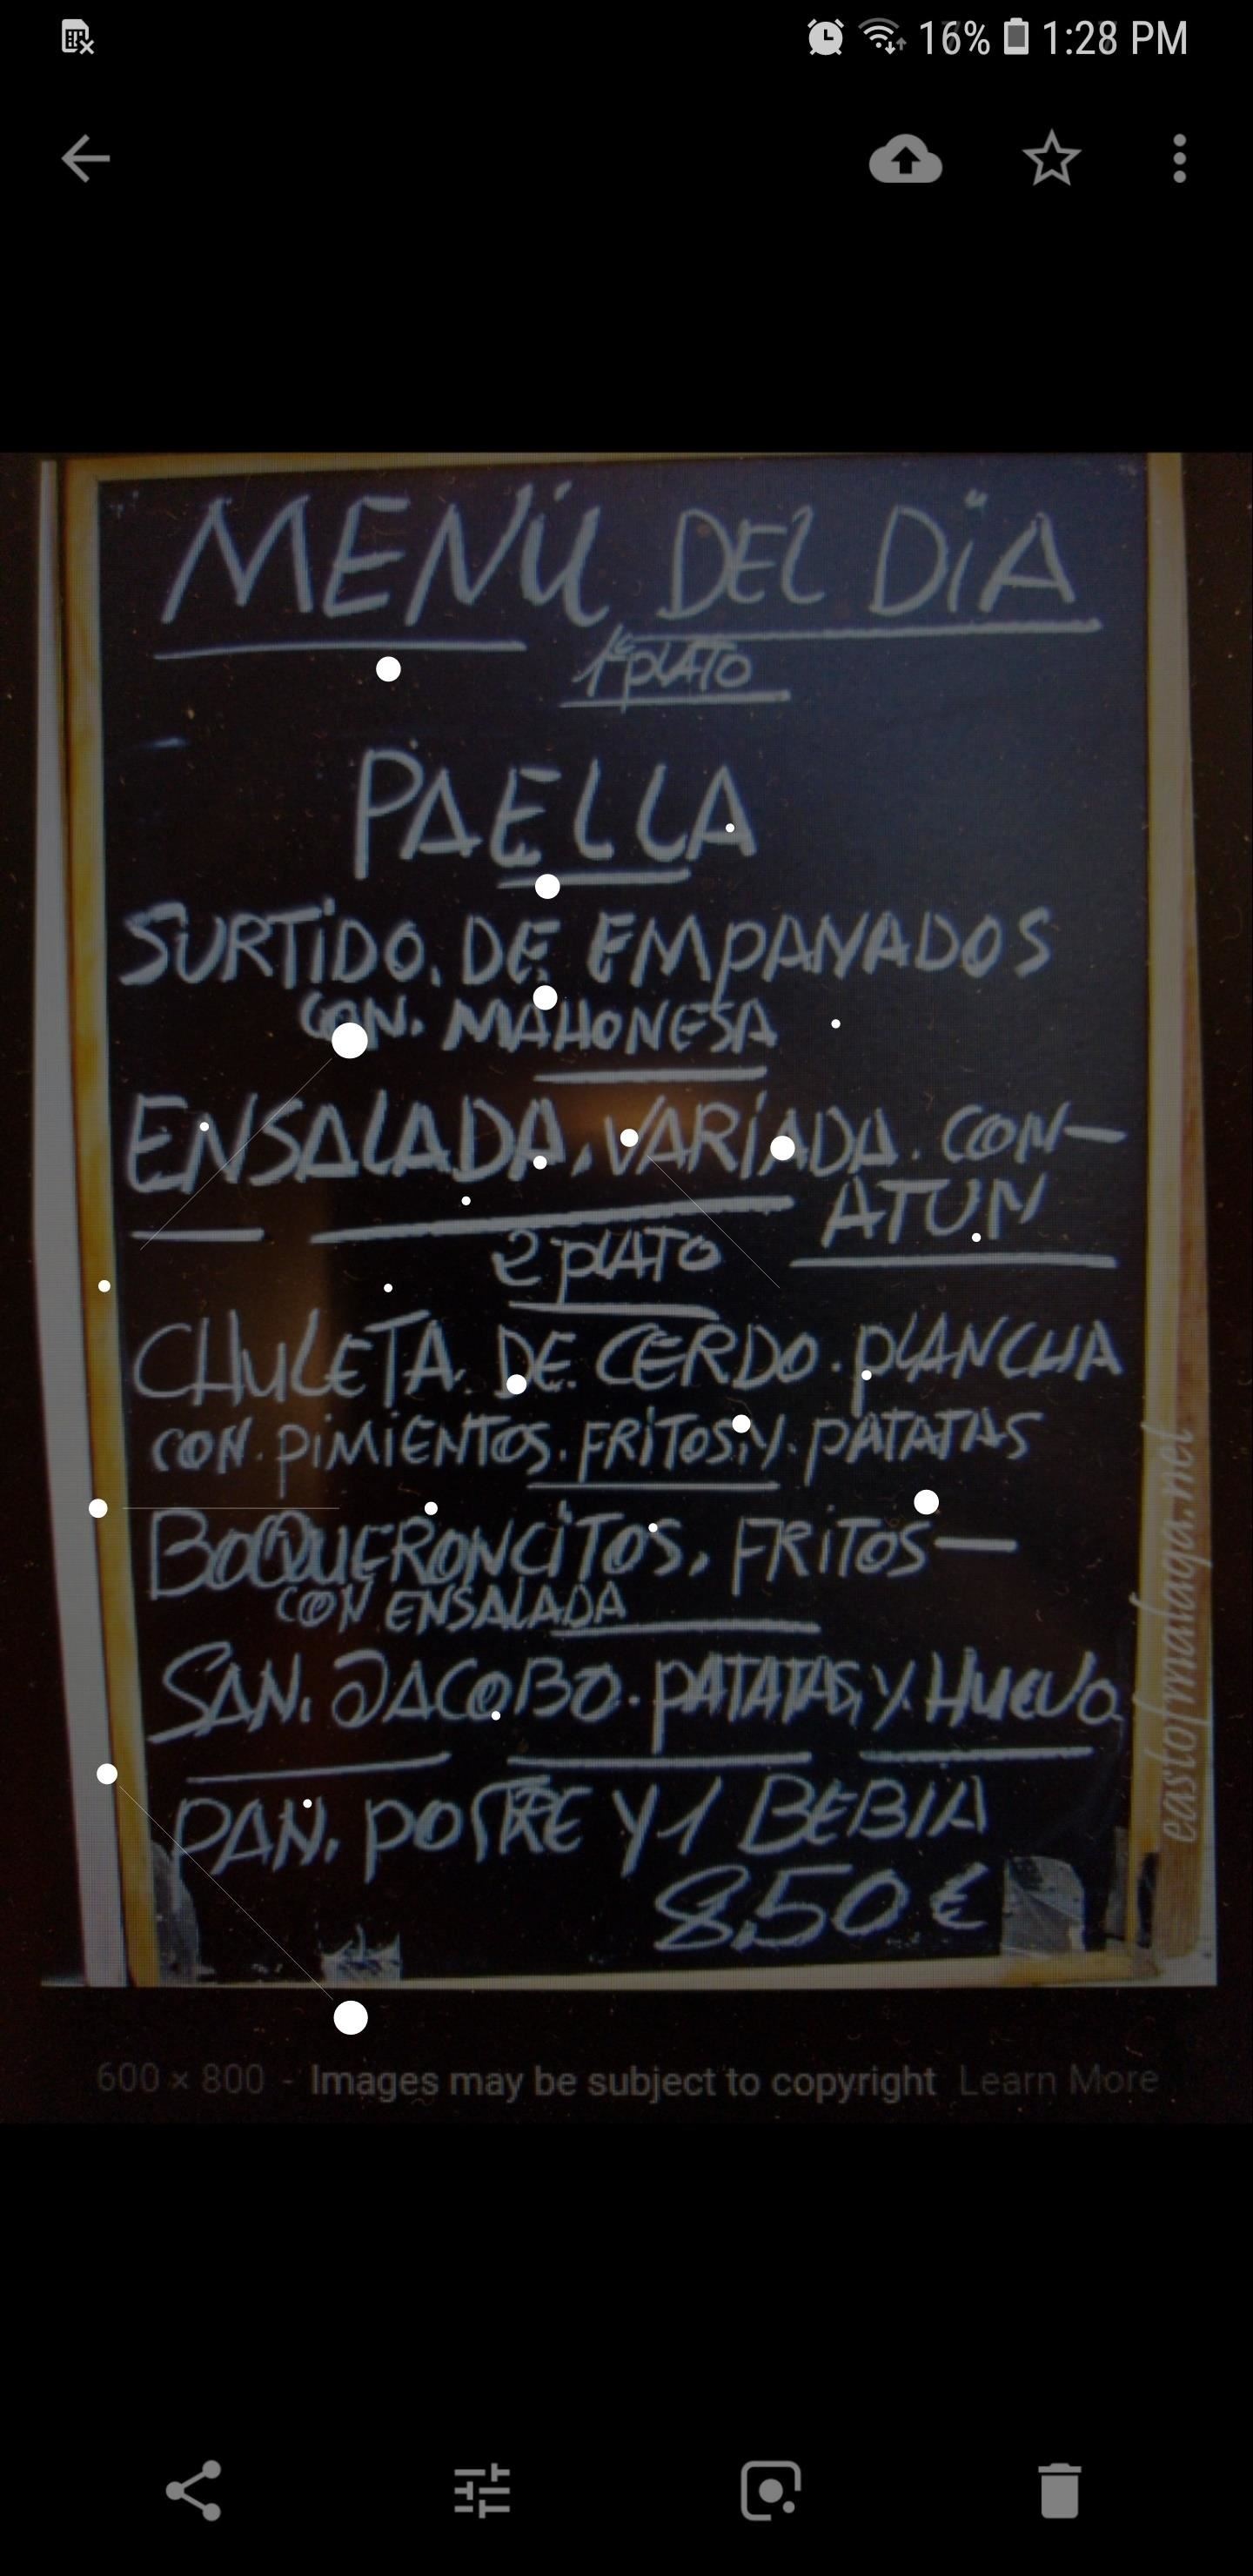 16% 1:28 PM
MENÚ DEL DÍA
1er PLATO
PAELLA
SURTIDO. DE EMPANADOS
CON. MAHONESA
ENSALADA, VARIADA. CON—
ATUN
2 PLATO
CHULETA. DE. CERDO. PLANCHA
CON. PIMIENTOS. FRITOS Y. PATATAS
BOQUERONCITOS, FRITOS—
CON ENSALADA
SAN. JACOBO. PATATAS, Y. HUEVO
PAN. POSTRE Y 1 BEBIA
8,50 €
eastofmalaga.net
600 × 800 - Images may be subject to copyright Learn More